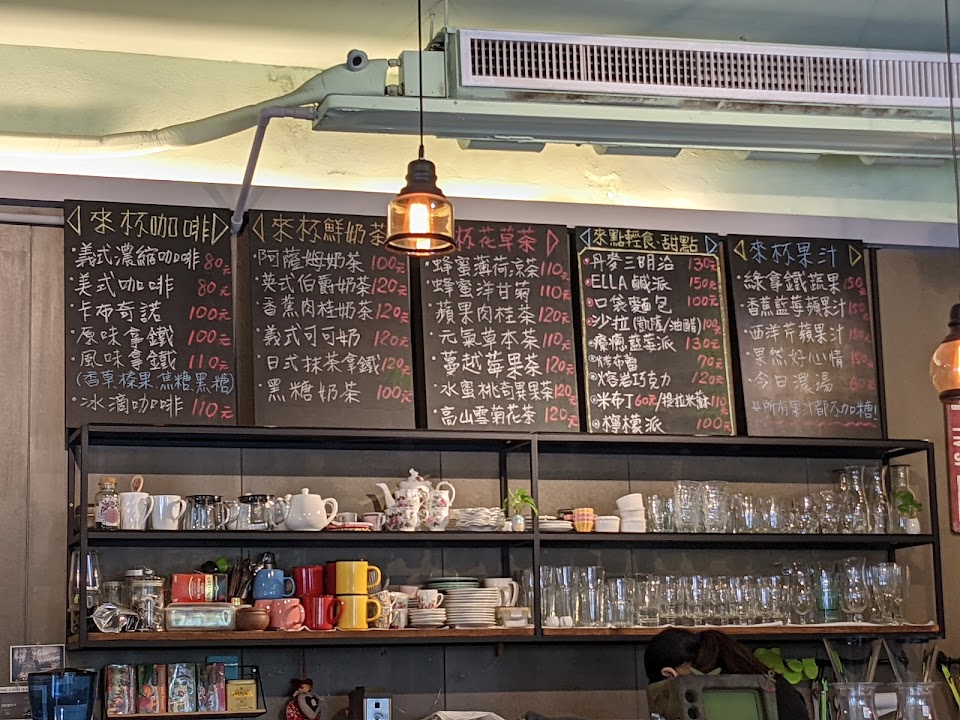 來杯咖啡
·義式濃縮咖啡 80元
·美式咖啡 80元
·卡布奇諾 100元
·原味拿鐵 100元
·風味拿鐵 110元
(香草.榛果.焦糖.黑糖)
·冰滴咖啡 110元
來杯鮮奶茶
·阿薩姆奶茶 100元
·英式伯爵奶茶 120元
·香蕉肉桂奶茶 120元
·義式可可奶 120元
·日式抹茶拿鐵 120元
·黑糖奶茶 100元
杯花草茶
·蜂蜜薄荷涼茶 110元
·蜂蜜洋甘菊 110元
·蘋果肉桂茶 120元
·元氣草本茶 110元
·蔓越莓果茶 120元
·水蜜桃奇異果茶 120元
·高山雪菊花茶 120元
來點輕食·甜點
·丹麥三明治 130元
·ELLA鹹派 150元
·口袋麵包 100元
·沙拉(凱薩/油醋) 100元
·藍莓派 130元
·烤布蕾 70元
·熔岩巧克力 120元
·米布丁 60元/提拉米蘇 110元
·檸檬派 100元
來杯果汁
·綠拿鐵蔬果 150元
·香蕉藍莓蘋果汁 150元
·西洋芹蘋果汁 150元
·果然好心情 150元
·今日濃湯 60元
#所有果汁都不加糖!